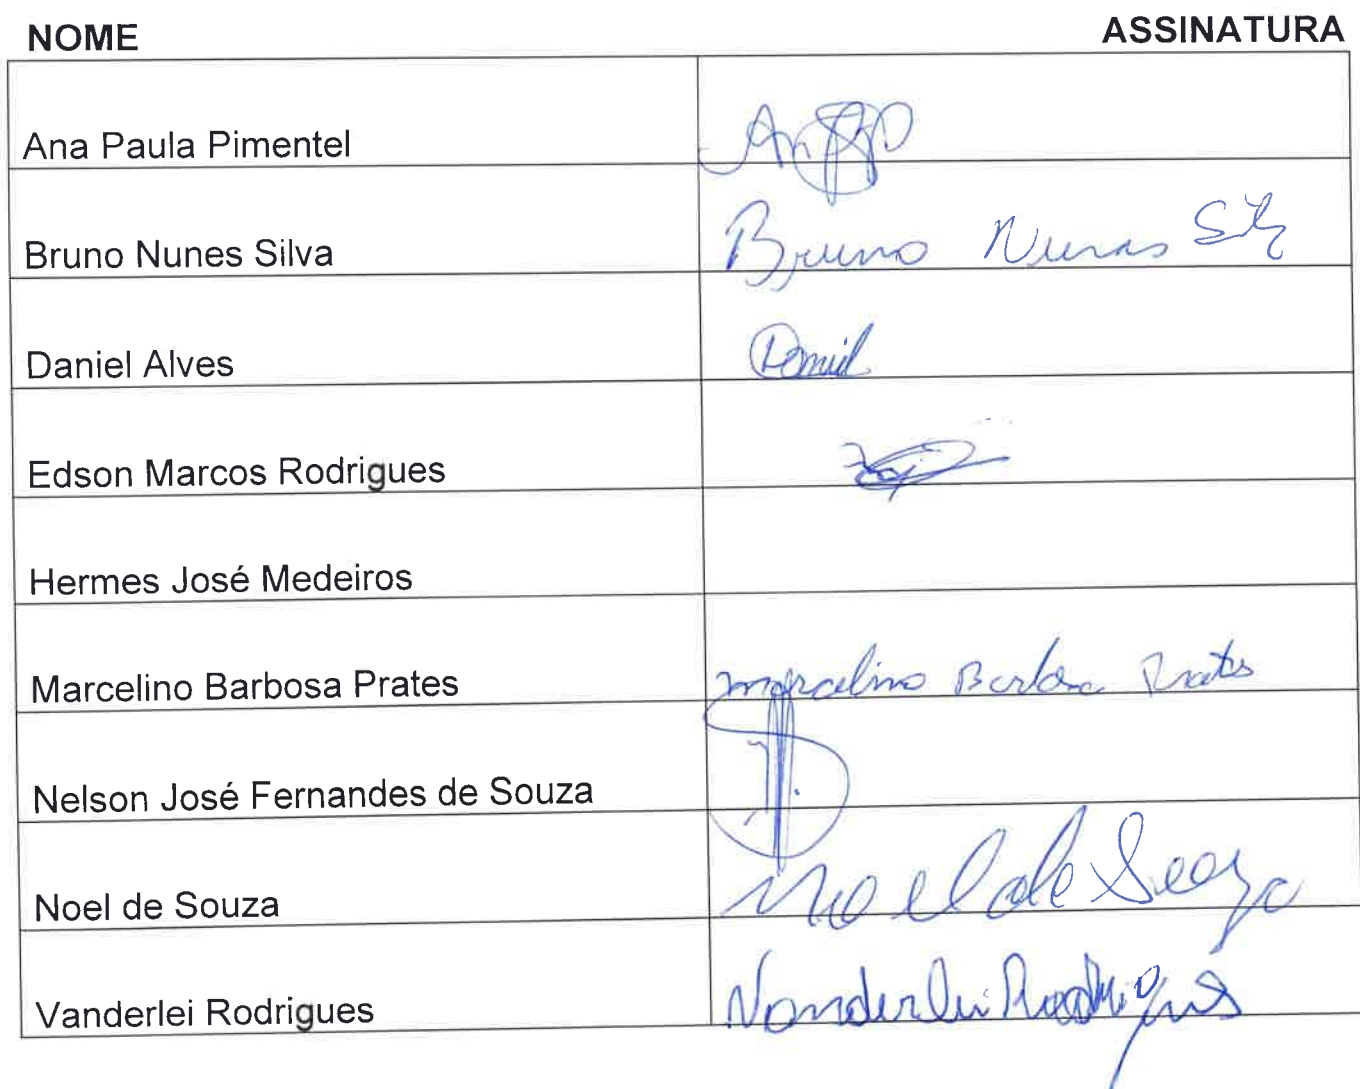 NOME ASSINATURA
Ana Paula Pimentel
Bruno Nunes Silva Bruno Nunes
Daniel Alves Daniel
Edson Marcos Rodrigues
Hermes José Medeiros
Marcelino Barbosa Prates Marcelino Barbosa Prates
Nelson José Fernandes de Souza
Noel de Souza Noel de Souza
Vanderlei Rodrigues Vanderlei Rodrigues